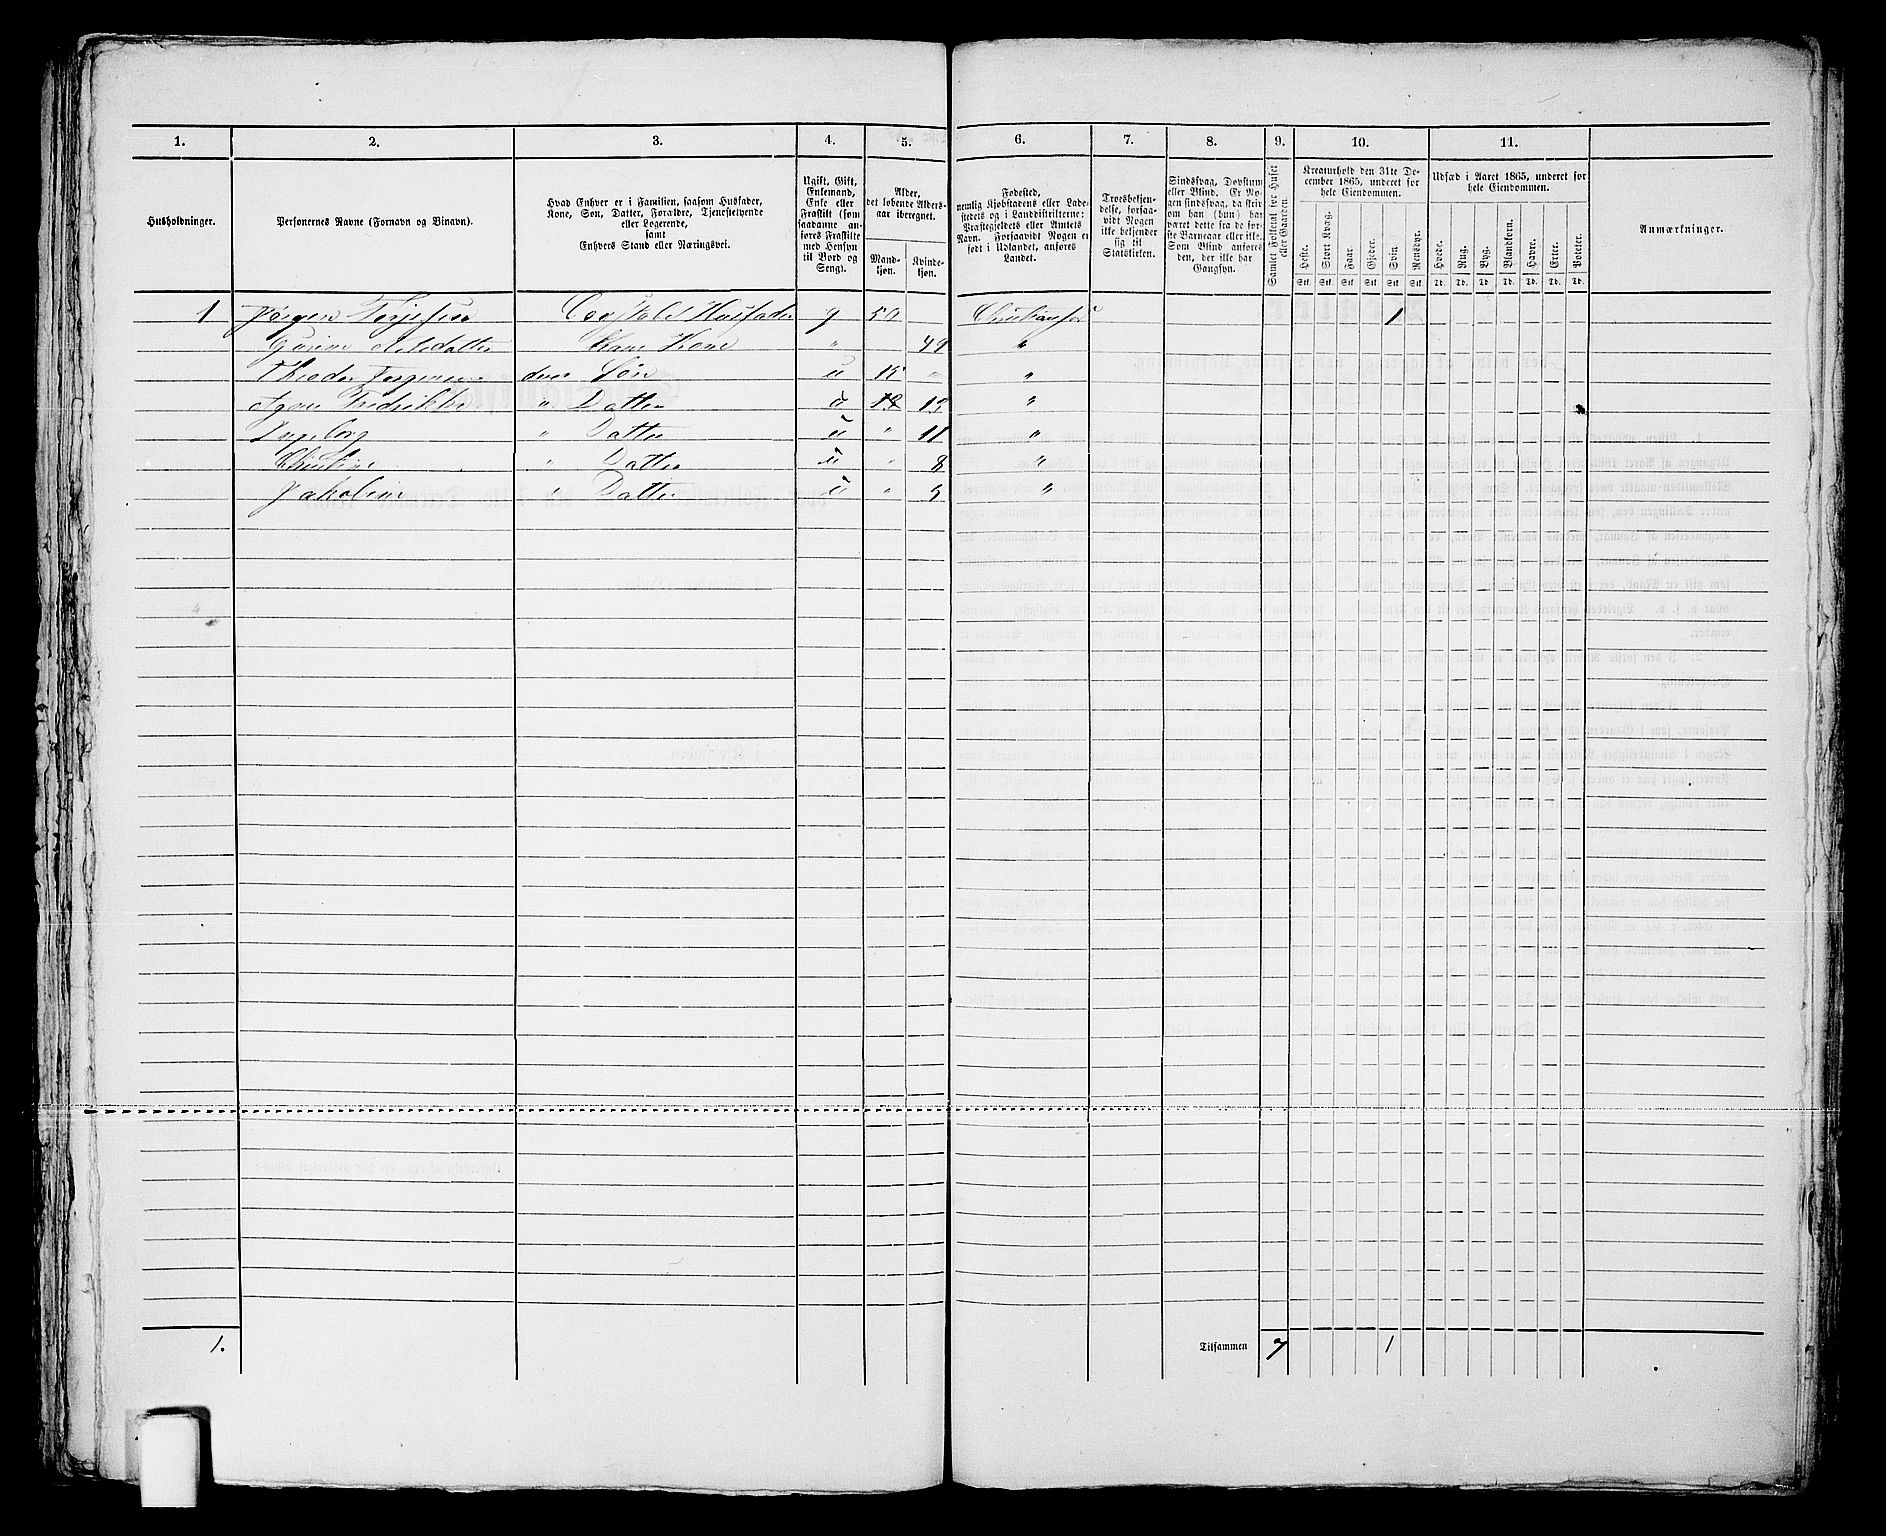 1. 2. 3. 4. 5. 6. 7. 8. 9. 10. 11.
Husholdninger.
Personernes Navne (Fornavn og Binavn).
Hvad Enhver er i Familien, saasom Husfader,
Kone, Søn, Datter, Forældre, Tjenestetyende
eller Logerende,
samt
Enhvers Stand eller Næringsvei.
Ugift, Gift,
Enkemand,
Enke eller
Fraskilt (som
saadanne an-
føres Fraskilte
med Hensyn
til Bord og
Seng).
Alder,
det løbende Alders-
aar iberegnet.
Mand-
kjøn.
Kvinde-
kjøn.
Fødested,
nemlig Kjøbstadens eller Lade-
stedets og i Landdistrikterne:
Præstegjeldets eller Amtets
Navn. Forsaavidt Nogen er
født i Udlandet, anføres
Landet.
Troesbekjen-
delse, forsaa-
vidt Nogen
ikke bekjender
sig til
Statskirken.
Sindssvag, Døvstum
eller Blind. Er No-
gen sindssvag, da skriv
om han (hun) har
været dette fra de før-
ste Barneaar eller ikke.
Som Blind anføres
den, der ikke har
Gangsyn.
Samlet Folketal for Huset
eller Gaarden.
Kreaturhold den 31te De-
cember 1865, underet for
hele Eiendommen.
Heste. Stort Kvæg. Faar. Gjeder. Svin. Rensdyr.
Stk. Stk. Stk. Stk. Stk. Stk.
Udsæd i Aaret 1865, underet for
hele Eiendommen.
Hvede. Rug. Byg. Blandkorn. Havre. Erter. Poteter.
Td. Td. Td. Td. Td. Td. Td.
Anmærkninger.
1 Jørgen Terjesen Husfader g 50 1
Kone " 49 "
Theodor Søn u 15 " "
Fredrikke " Datter u 12 "
Ingeborg " Datter u " 11 "
Christine " Datter u " 8 "
Jakobine " Datter u " "
1. Tilsammen 7 1